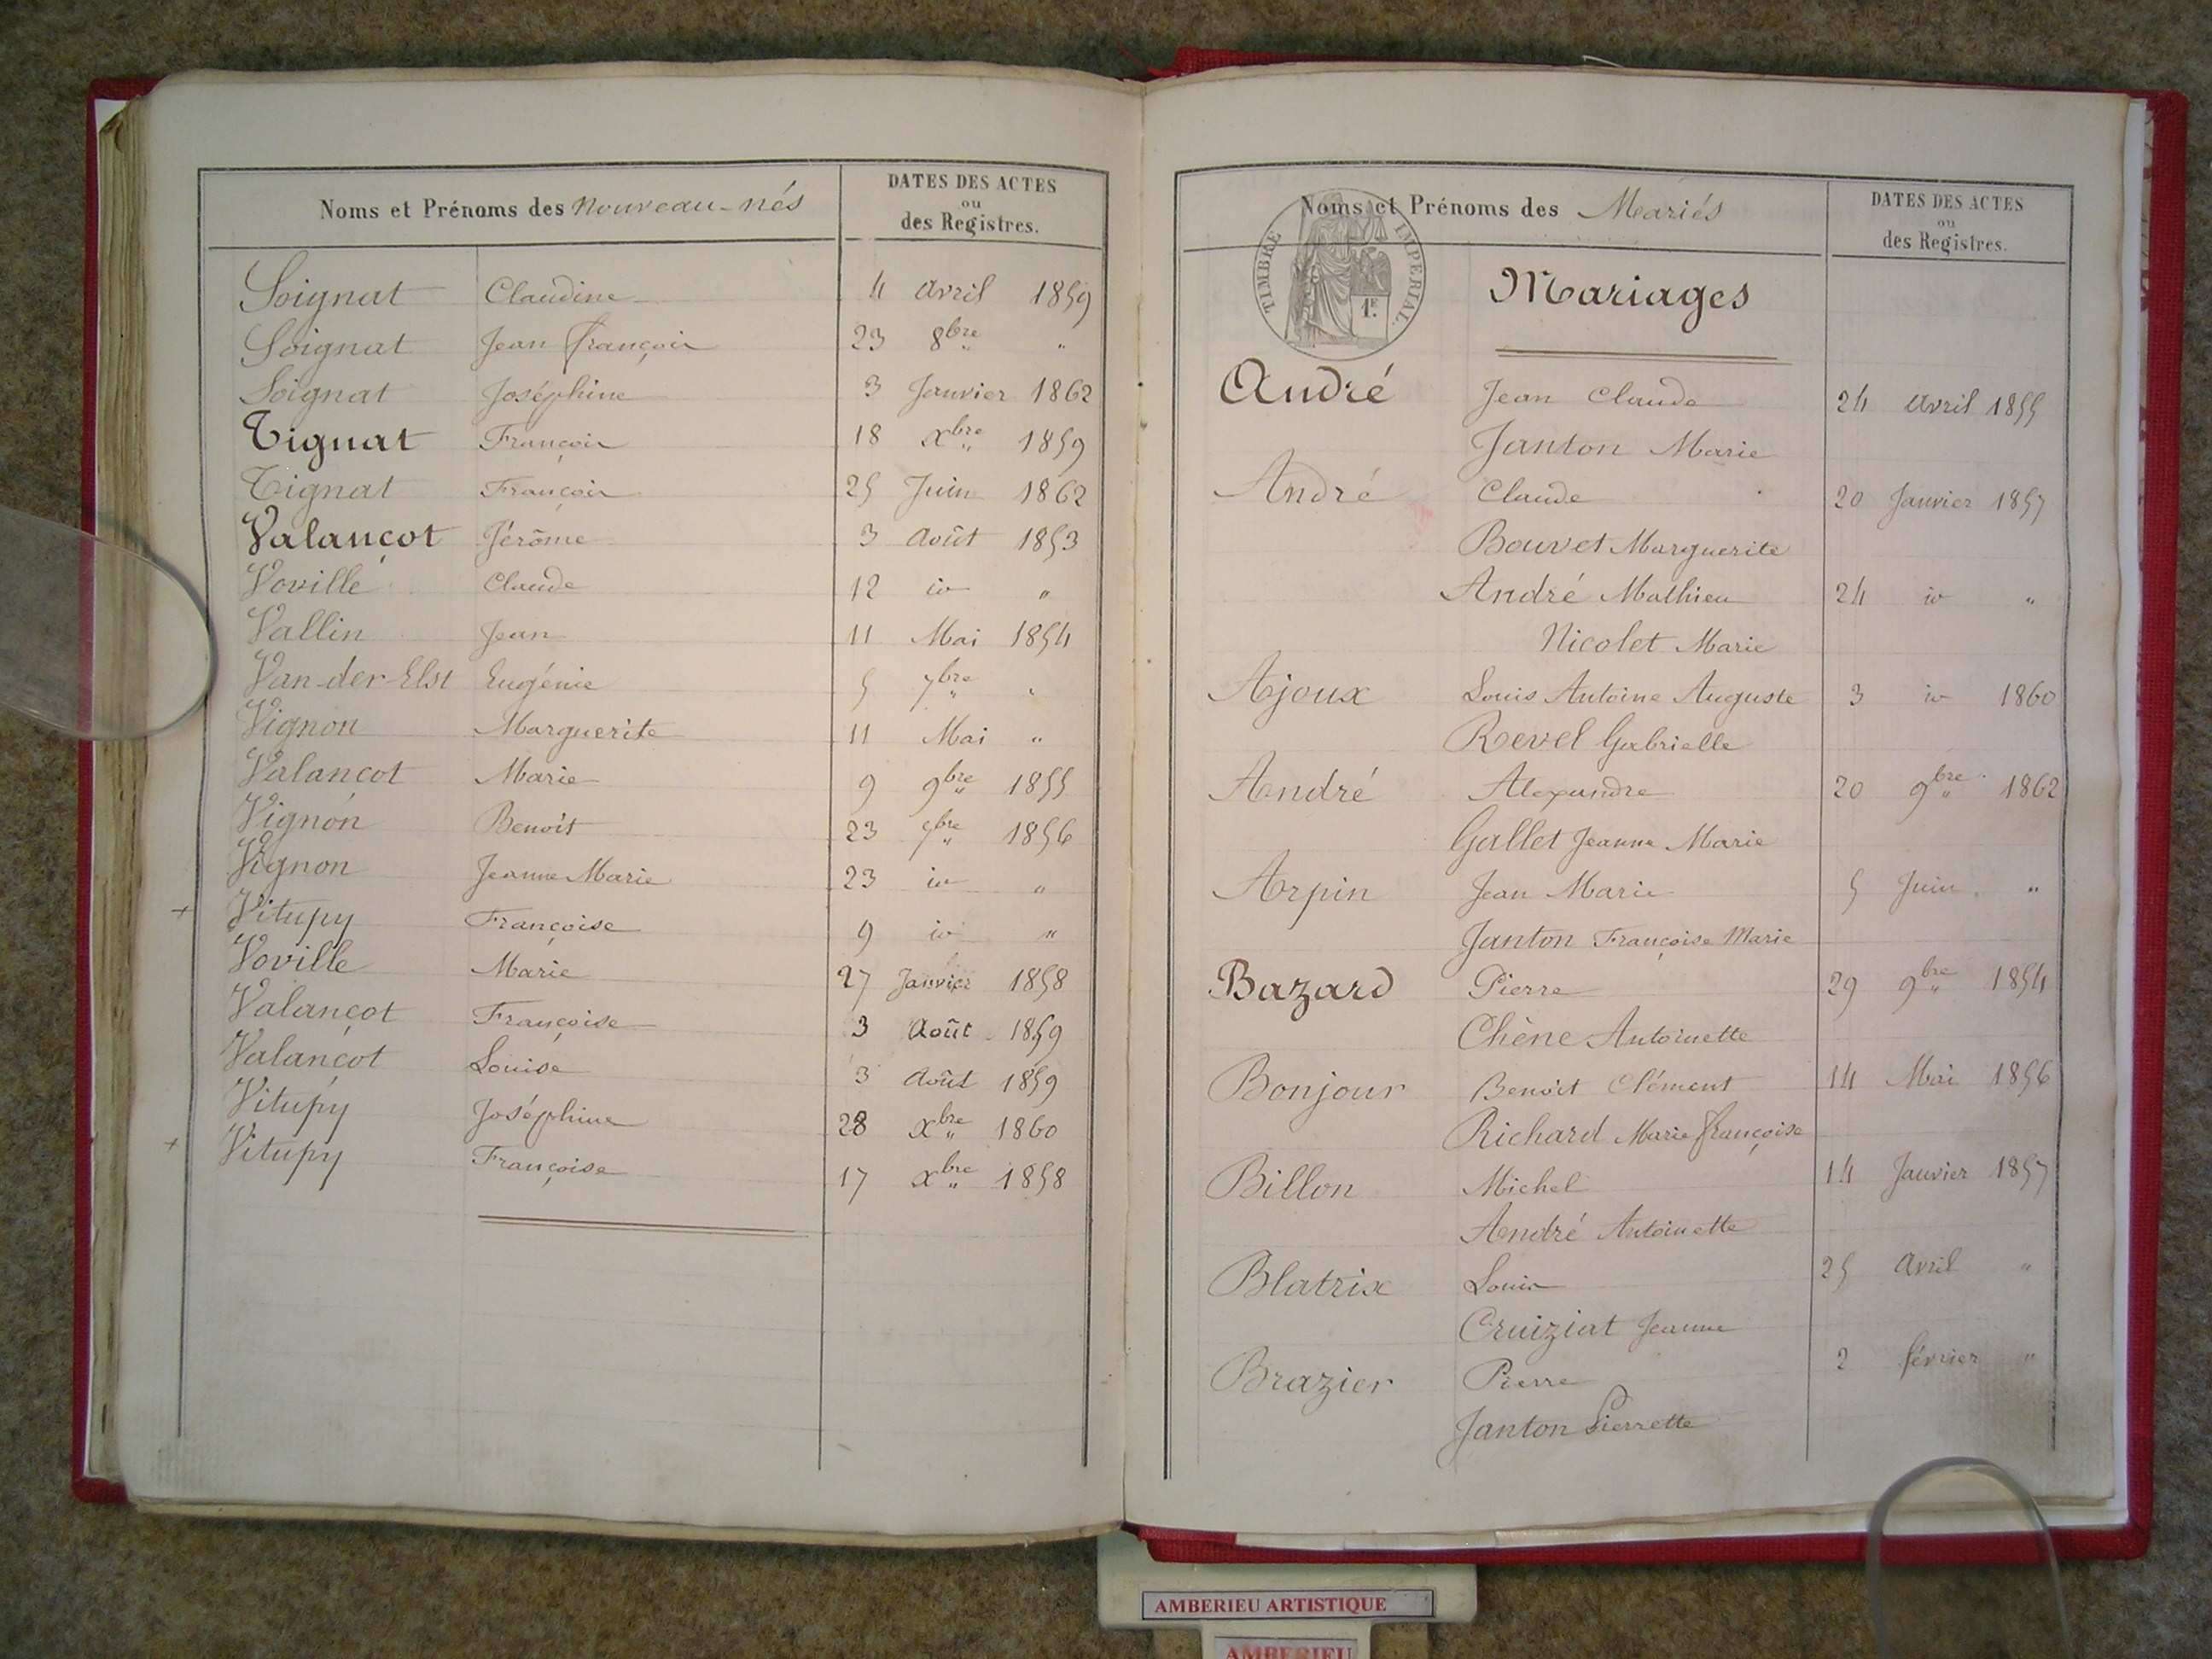 Noms et Prénoms des Nouveau-nés
DATES DES ACTES
ou
des Registres.
Soignat Claudine 4 avril 1859
Soignat Jean François 23 8bre "
Soignat Joséphine 3 Janvier 1862
Tignat François 18 xbre 1859
Tignat François 25 Juin 1862
Valançot Jérôme 3 Août 1853
Voville Claude 12 id "
Vallin Jean 11 Mai 1854
Van-der-Elst Eugénie 5 7bre "
Vignon Marguerite 11 Mai "
Valançot Marie 9 9bre 1855
Vignon Benoît 23 7bre 1856
Vignon Jeanne Marie 23 id "
+ Vitupy Françoise 9 id "
Voville Marie 27 Janvier 1858
Valançot Françoise 3 Août 1859
Valançot Louise 3 Août 1859
Vitupy Joséphine 28 xbre 1860
+ Vitupy Françoise 17 xbre 1858
Noms et Prénoms des Mariés
DATES DES ACTES
ou
des Registres.
TIMBRE IMPERIAL.
1F.
Mariages
André Jean Claude 24 avril 1855
Janton Marie
André Claude 20 Janvier 1857
Bouvet Marguerite
André Mathieu 24 id "
Nicolet Marie
Ajoux Louis Antoine Auguste 3 id 1860
Revel Gabrielle
André Alexandre 20 9bre 1862
Gallet Jeanne Marie
Arpin Jean Marie 5 Juin "
Janton Françoise Marie
Bazard Pierre 29 9bre 1854
Chêne Antoinette
Bonjour Benoît Clément 14 Mai 1856
Richard Marie Françoise
Billon Michel 14 Janvier 1857
André Antoinette
Blatrix Louis 25 Avril "
Cruiziat Jeanne
Brazier Pierre 2 février "
Janton Pierrette
AMBERIEU ARTISTIQUE
AMBERIEU